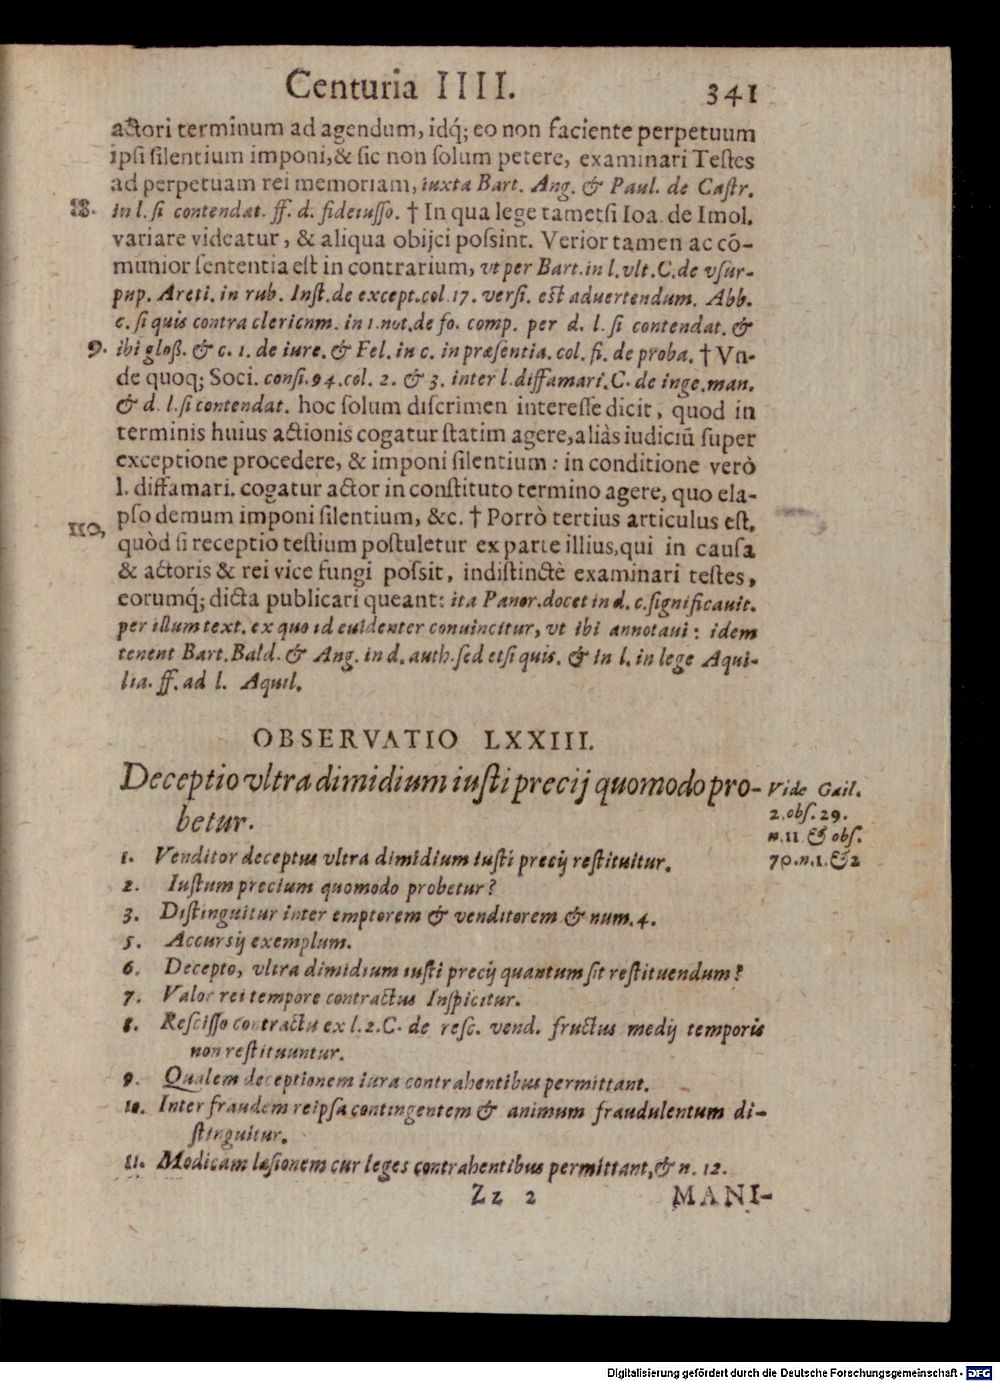 Centuria IIII. 341
actori terminum ad agendum, idq́; eo non faciente perpetuum
ipsi silentium imponi, & sic non solum petere, examinari Testes
ad perpetuam rei memoriam, iuxta Bart. Ang. & Paul. de Castr.
18. in l. si contendat. ff. d. fideiusso. † In qua lege tametsi Ioa. de Imol.
variare videatur, & aliqua obijci possint. Verior tamen ac cō-
munior sententia est in contrarium, vt per Bart. in l. vlt. C. de vsur-
pup. Areti. in rub. Inst. de except. col. 17. versi. est aduertendum. Abb.
c. si quis contra clericum. in 1. not. de fo. comp. per d. l. si contendat. &
9. ibi gloß. & c. 1. de iure. & Fel. in c. in præsentia. col. fi. de proba. † Vn-
de quoq; Soci. consi. 94. col. 2. & 3. inter l. diffamari. C. de inge. man.
& d. l. si contendat. hoc solum discrimen interesse dicit, quod in
terminis huius actionis cogatur statim agere, aliàs iudiciū super
exceptione procedere, & imponi silentium: in conditione verò
l. diffamari. cogatur actor in constituto termino agere, quo ela-
110, pso demum imponi silentium, &c. † Porrò tertius articulus est,
quòd si receptio testium postuletur ex parte illius, qui in causa
& actoris & rei vice fungi possit, indistinctè examinari testes,
eorumq́; dicta publicari queant: ita Panor. docet in d. c. significauit.
per illum text. ex quo id euidenter conuincitur, vt ibi annotaui: idem
tenent Bart. Bald. & Ang. in d. auth. sed etsi quis. & in l. in lege Aqui-
lia. ff. ad l. Aquil.
OBSERVATIO LXXIII.
Deceptio vltra dimidium iusti precij quomodo pro-
betur.
Vide Gail.
2. obs. 29.
n. 11 & obs.
70. n. 1. & 2
1. Venditor deceptus vltra dimidium iusti precij restituitur.
2. Iustum precium quomodo probetur?
3. Distinguitur inter emptorem & venditorem & num. 4.
5. Accursij exemplum.
6. Decepto, vltra dimidium iusti precij quantum sit restituendum?
7. Valor rei tempore contractus Inspicitur.
8. Rescisso contractu ex l. 2. C. de resc. vend. fructus medij temporis
non restituuntur.
9. Qualem deceptionem iura contrahentibus permittant.
10. Inter fraudem reipsa contingentem & animum fraudulentum di-
stinguitur.
11. Modicam læsionem cur leges contrahentibus permittant, & n. 12.
Zz 2 MANI-
Digitalisierung gefördert durch die Deutsche Forschungsgemeinschaft - DFG